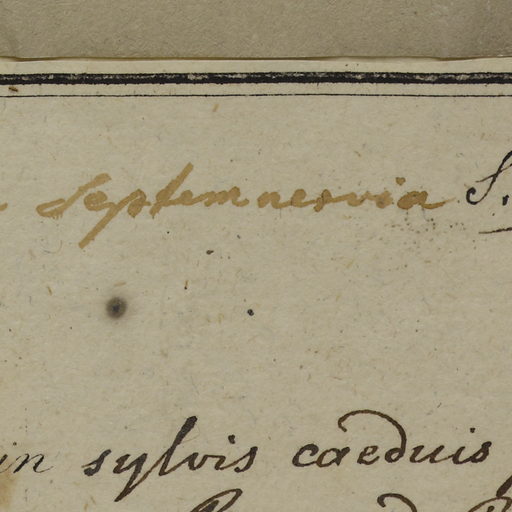 Septemnervia S.
in sylvis caeduis